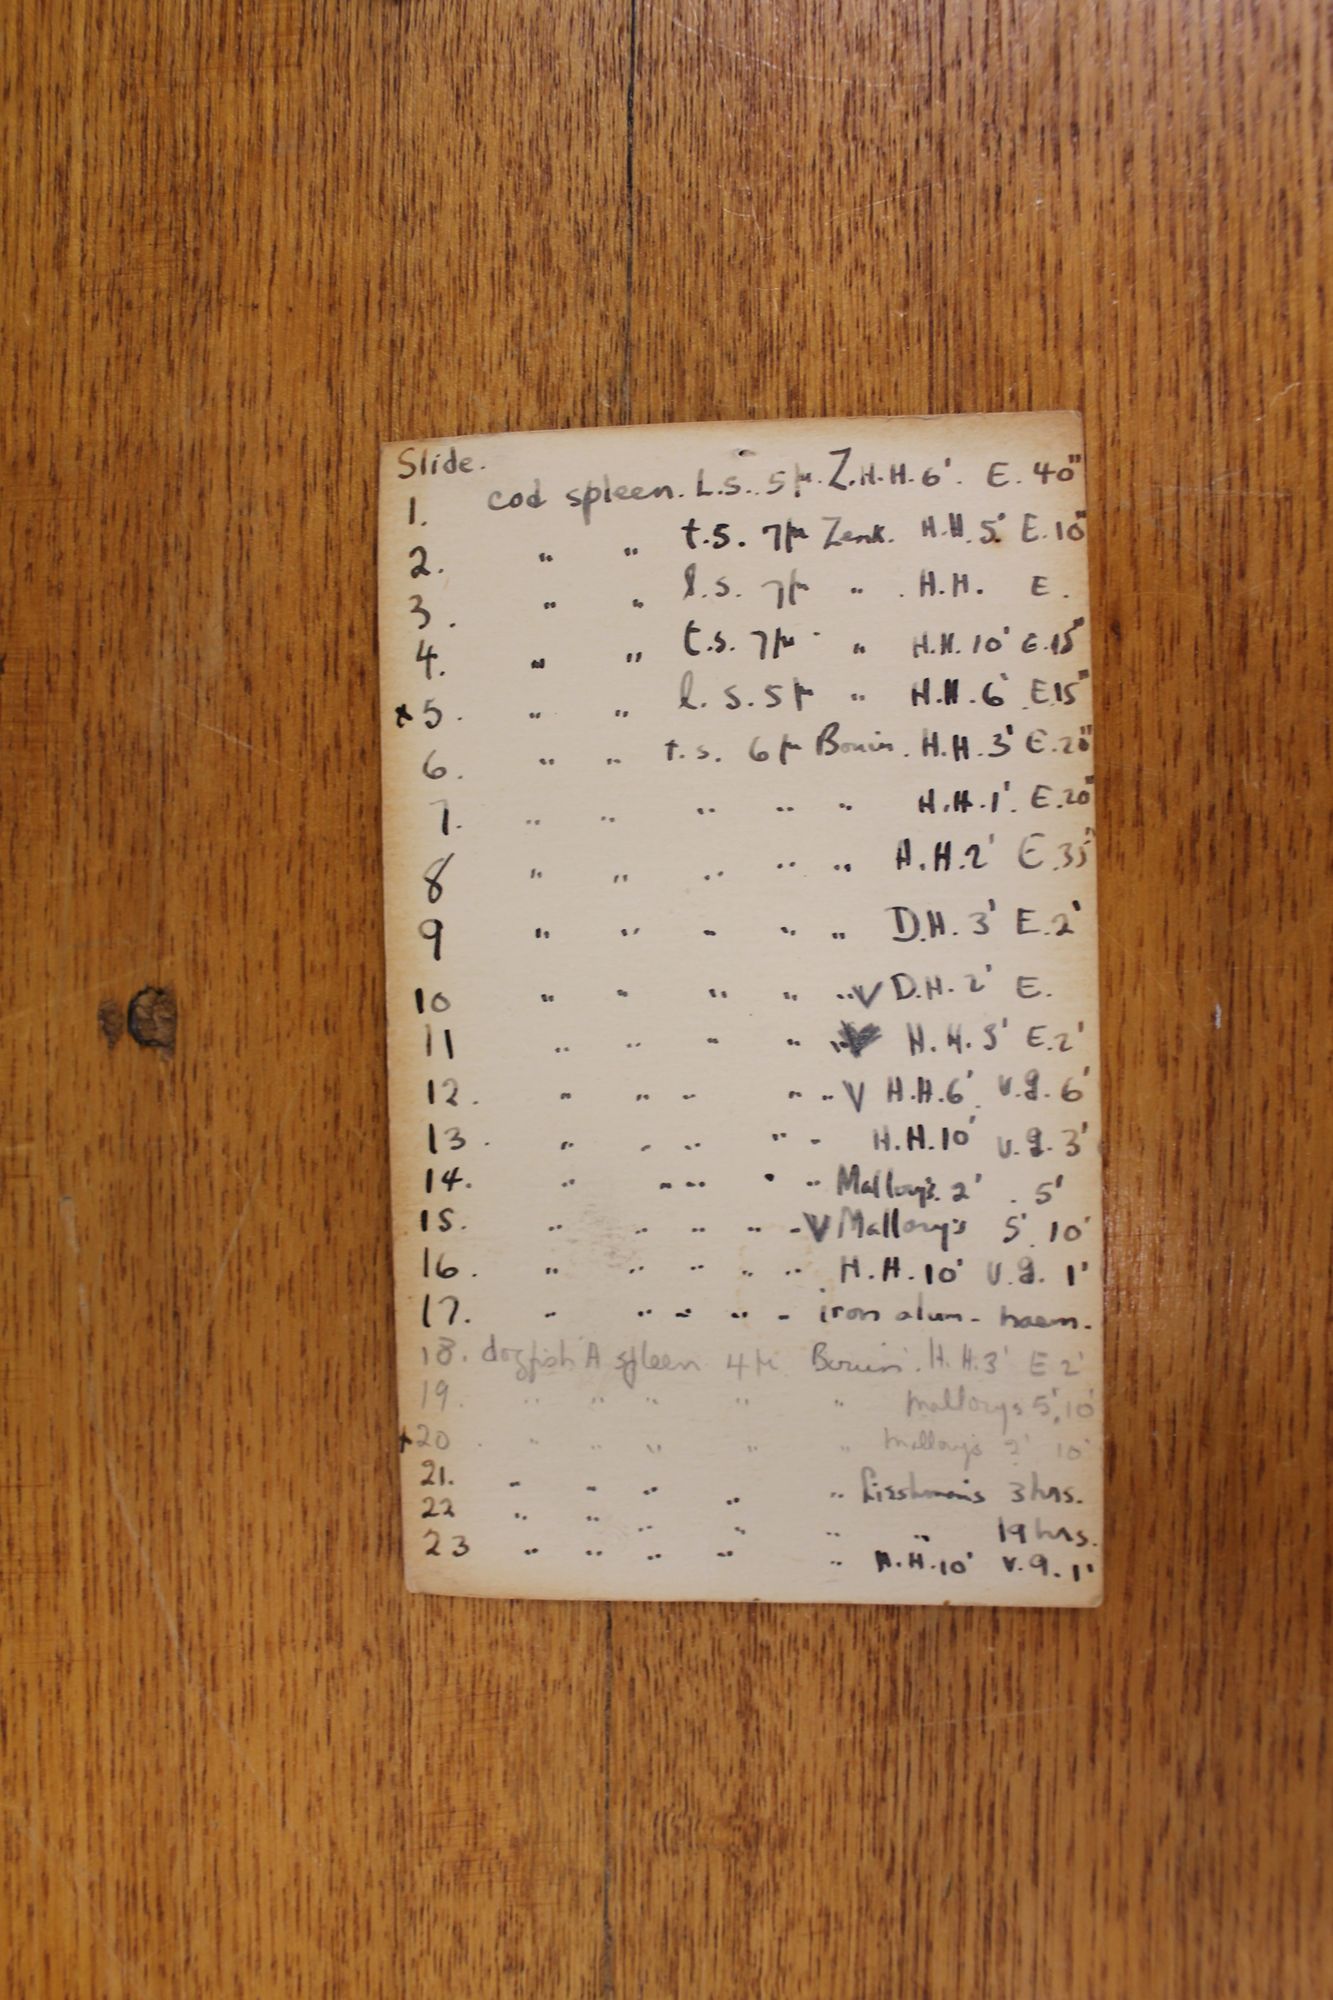 Slide.
1. cod spleen. L.S. 5μ. Z.H.H. 6'. E. 40"
2. " " t.s. 7μ Zenk. H.H. 5' E. 10"
3. " " l.s. 7μ " . H.H. E.
4. " " t.s. 7μ " H.H. 10' E. 15"
x 5. " " l.s. 5μ " H.H. 6' E. 15"
6. " " t.s. 6μ Bouin. H.H. 3' E. 20"
7. " " " " " H.H. 1'. E. 20"
8 " " " " " H.H. 2' E. 35"
9 " " " " " D.H. 3' E. 2'
10 " " " " " V D.H. 2' E.
11 " " " " " V H.H. 3' E. 2'
12. " " " " " V H.H. 6'. v.g. 6'
13. " " " " " H.H. 10' v.g. 3'
14. " " " " " Mallory's. 2' . 5'
15. " " " " " V Mallory's 5'. 10'
16. " " " " " H.H. 10' v.g. 1'
17. " " " " " iron alum- haem.
18. dogfish A spleen 4μ Bouin. H.H. 3' E 2'
19. " " " " " Mallorys 5', 10'
+ 20. " " " " " Mallory's 2' 10'
21. " " " " " Lieshman's 3 hrs.
22 " " " " " " 19 hrs.
23 " " " " " H.H. 10' v.g. 1'